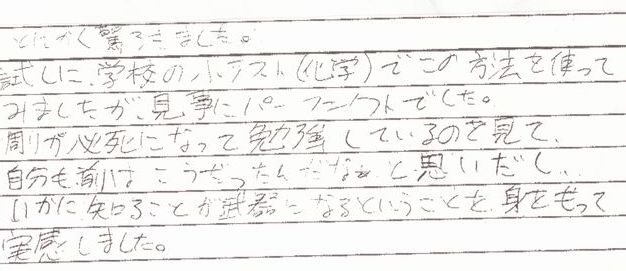 とにかく驚きました。
試しに、学校の小テスト(化学)でこの方法を使って
みましたが、見事にパーフェクトでした。
周りが必死になって勉強しているのを見て、
自分も前はこうだったんだなぁと思いだし、
いかに知ることが武器になるということを、身をもって
実感しました。